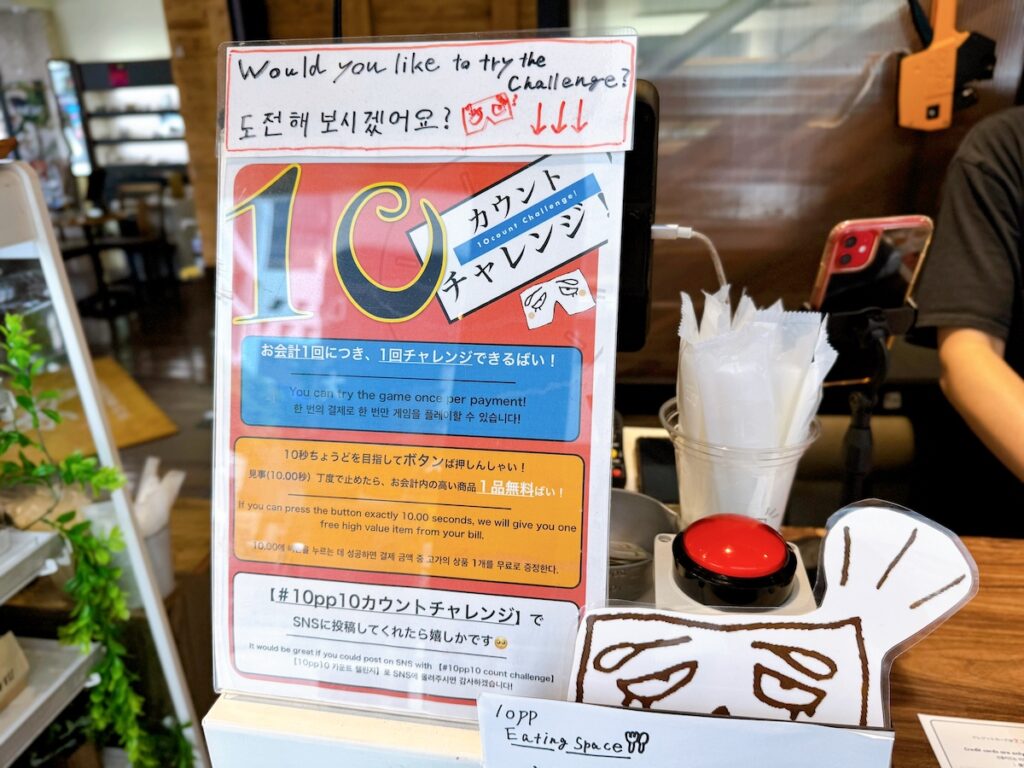 Would you like to try the
Challenge?
도전해 보시겠어요? ↓↓↓
10
カウント
10count Challenge!
チャレンジ!
お会計1回につき、1回チャレンジできるばい！
You can try the game once per payment!
한 번의 결제로 한 번만 게임을 플레이할 수 있습니다!
10秒ちょうどを目指してボタンば押しんしゃい！
見事(10.00秒）丁度で止めたら、お会計内の高い商品１品無料ばい！
If you can press the button exactly 10.00 seconds, we will give you one
free high value item from your bill.
10.00에 버튼을 누르는 데 성공하면 결제 금액 중 고가의 상품 1개를 무료로 증정한다.
【＃10pp10カウントチャレンジ】で
SNSに投稿してくれたら嬉しかです🥺
It would be great if you could post on SNS with 【#10pp10 count challenge】
【10pp10 카운트 챌린지】로 SNS에 올려주시면 감사하겠습니다!
10PP
Eating Space